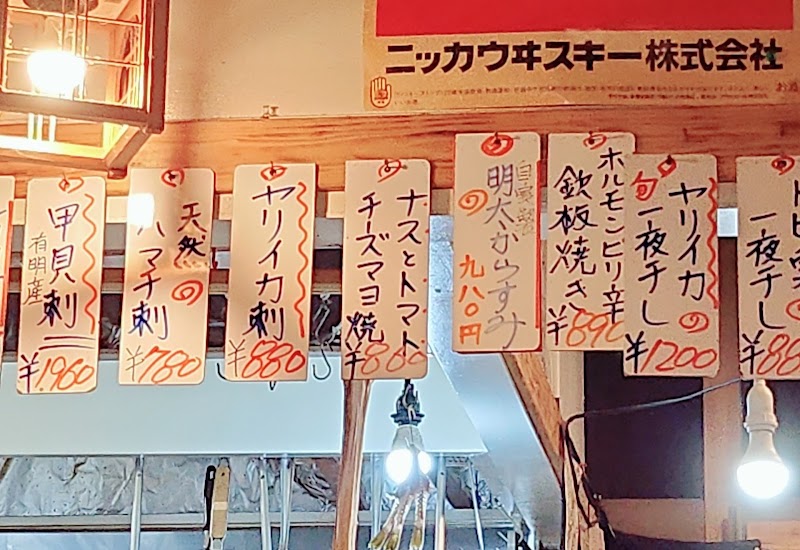 ニッカウヰスキー株式会社
甲貝刺
有明産
¥1,960
天然の
ハマチ刺
¥780
ヤリイカ刺
¥880
ナスとトマト
チーズマヨ焼
¥860
自家製
明太からすみ
の
九八〇円
ホルモンピリ辛
鉄板焼き
¥890
旬
ヤリイカの
一夜干し
¥1200
一夜干し